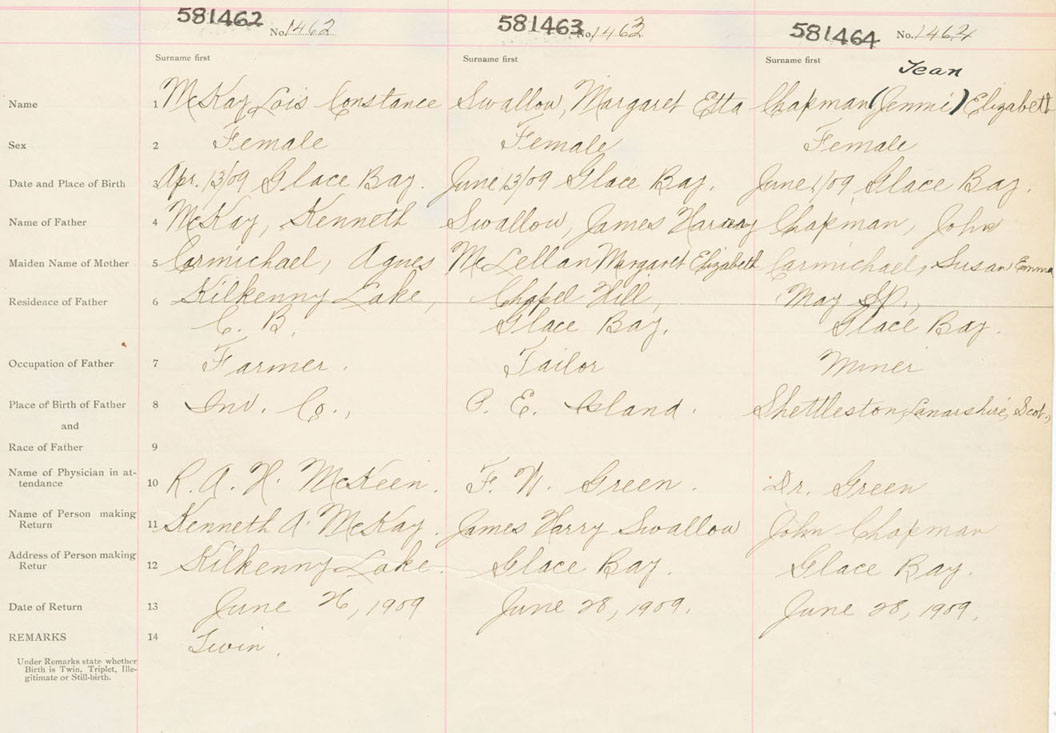 581462 No. 1462 581463 No. 1463 581464 No. 1464
Surname first Surname first Surname first
Jean
Name 1 McKay Lois Constance Swallow, Margaret Etta Chapman (Jennie) Elizabeth
Sex 2 Female Female Female
Date and Place of Birth 3 Apr. 13/09 Glace Bay. June 13/09 Glace Bay. June 1/09 Glace Bay.
Name of Father 4 McKay, Kenneth Swallow, James Harry Chapman, John
Maiden Name of Mother 5 Carmichael, Agnes McLellan Margaret Elizabeth Carmichael, Susan Emma
Residence of Father 6 Kilkenny Lake, Chapel Hill, May St.,
C. B. Glace Bay. Glace Bay.
Occupation of Father 7 Farmer. Tailor Miner
Place of Birth of Father 8 Inv. Co., P. E. Island. Shettleston, Lanarshire, Scot.,
and
Race of Father 9
Name of Physician in at-
tendance 10 R. A. H. McKeen. F. W. Green. Dr. Green
Name of Person making
Return 11 Kenneth A. McKay. James Harry Swallow John Chapman
Address of Person making
Retur 12 Kilkenny Lake. Glace Bay. Glace Bay.
Date of Return 13 June 26, 1909 June 28, 1909. June 28, 1909.
REMARKS 14 Twin.
Under Remarks state whether
Birth is Twin, Triplet, Ille-
gitimate or Still-birth.